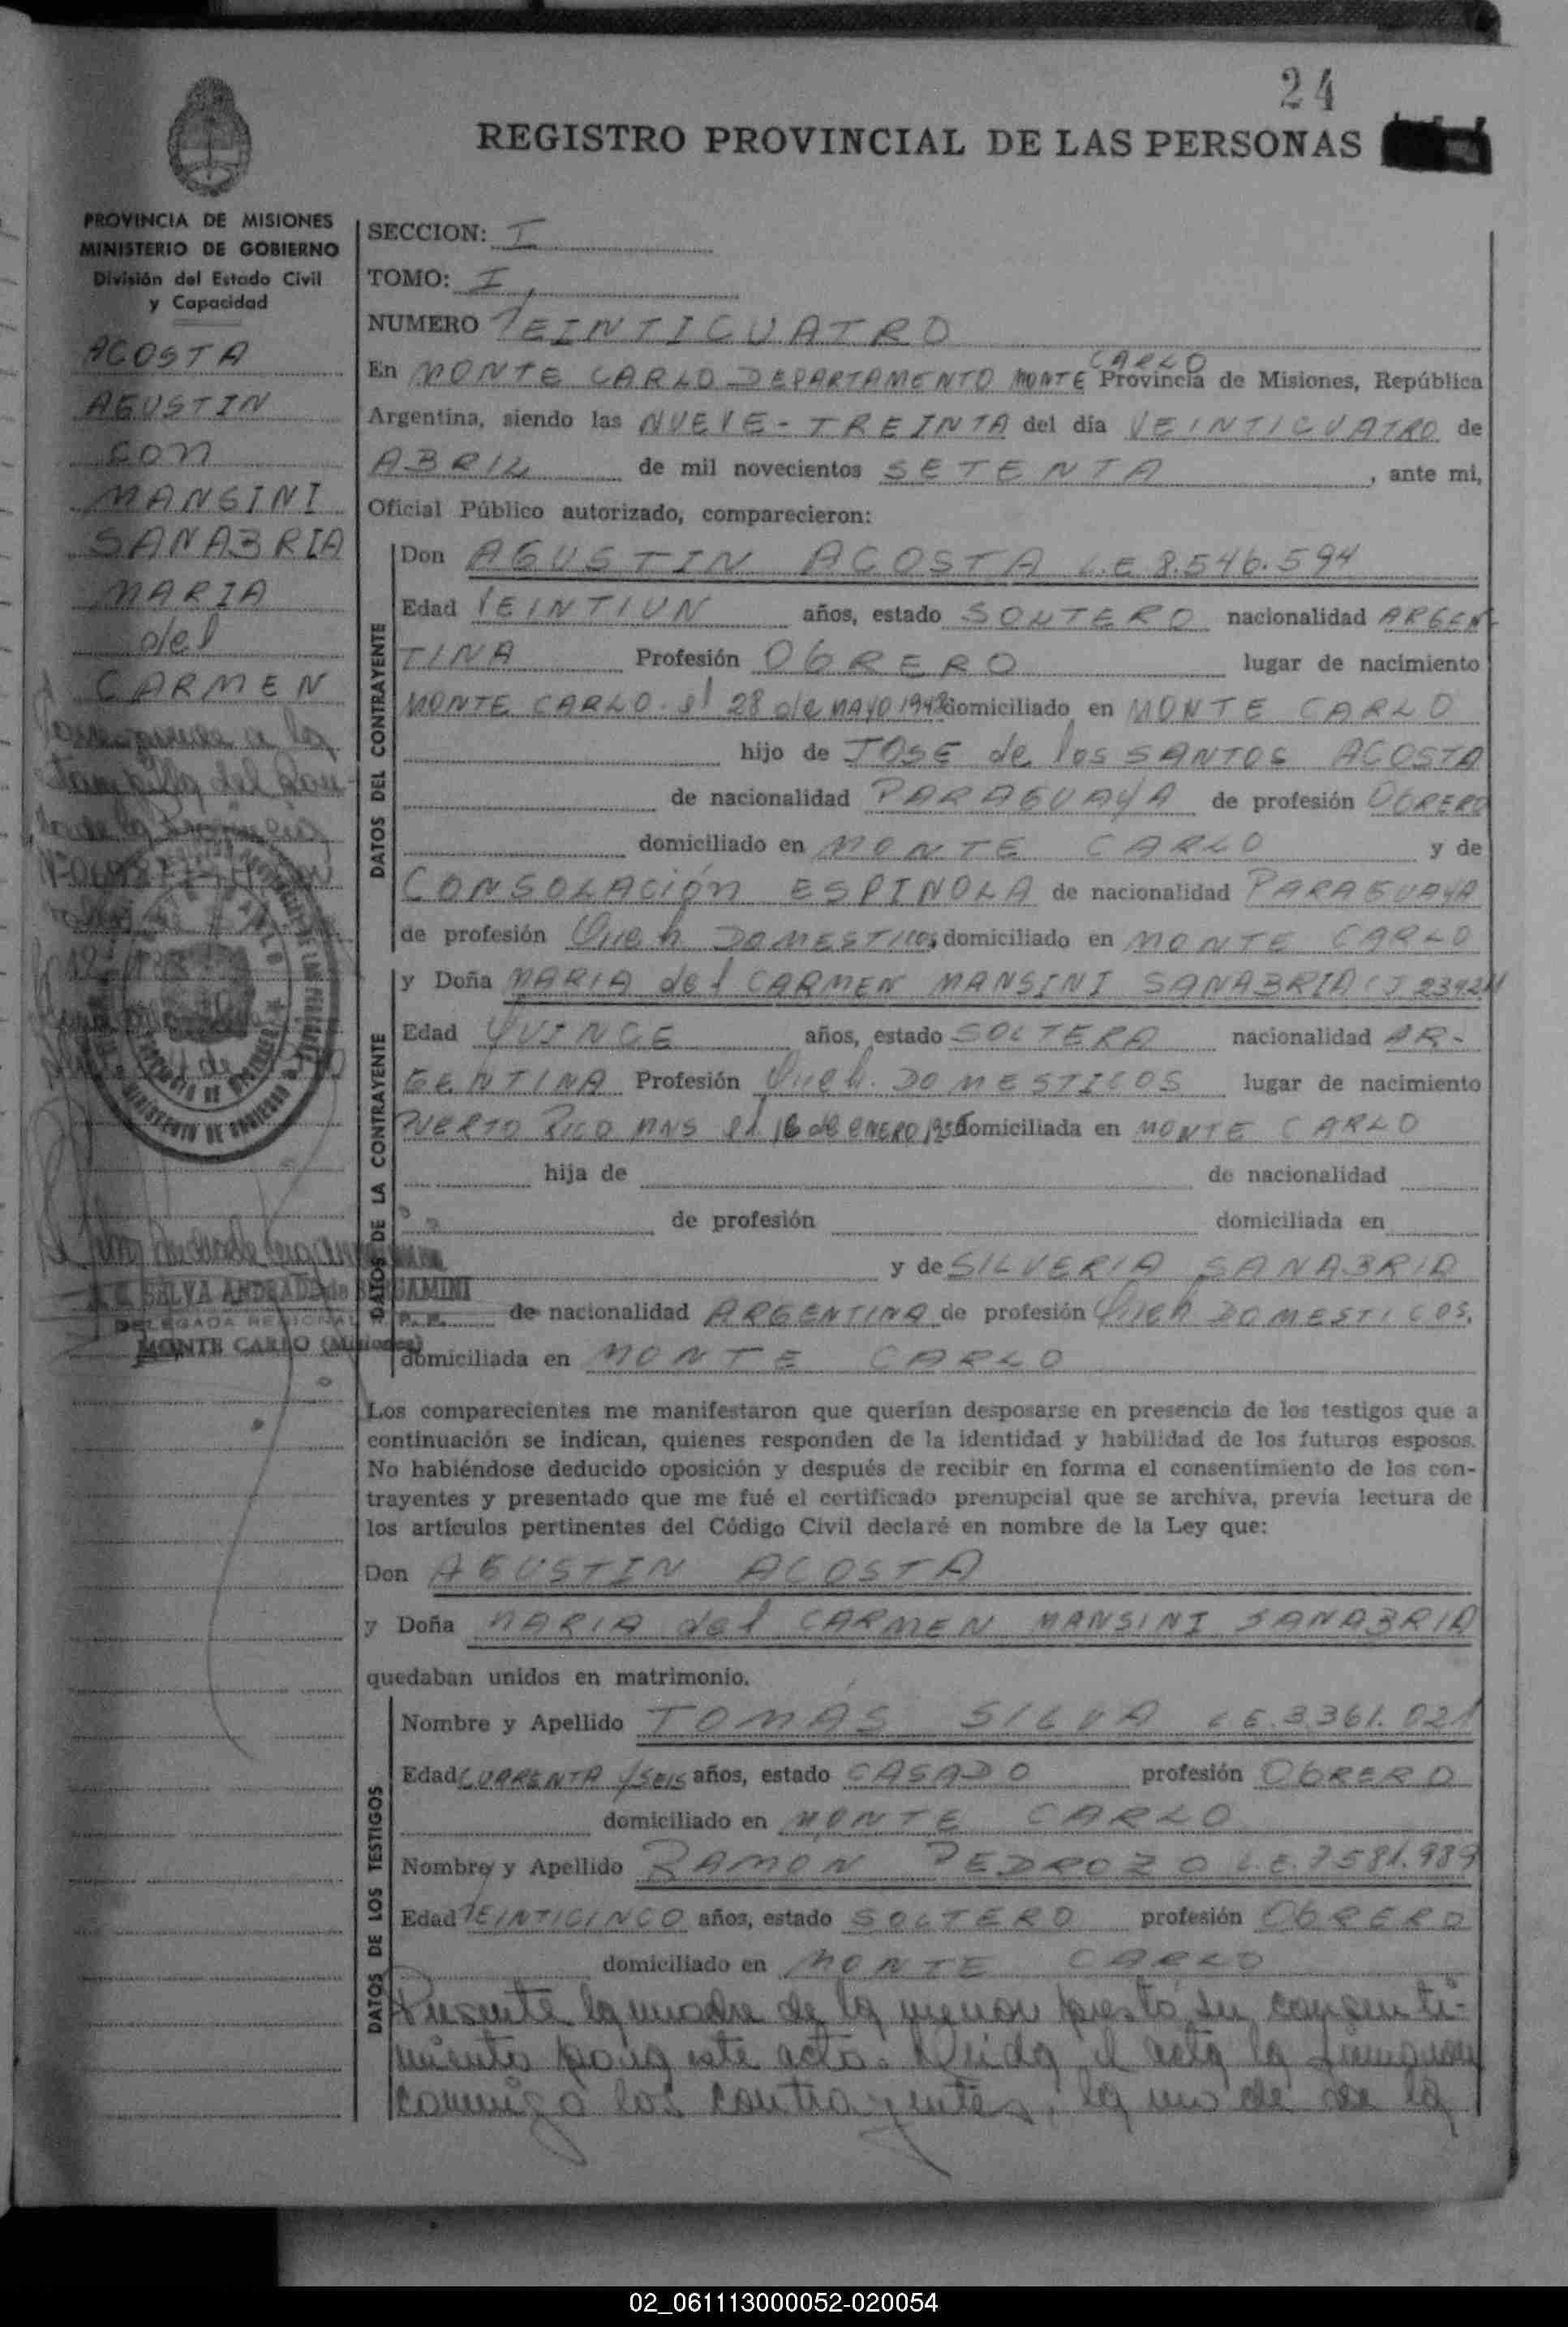 24
REGISTRO PROVINCIAL DE LAS PERSONAS
PROVINCIA DE MISIONES
MINISTERIO DE GOBIERNO
División del Estado Civil
y Capacidad
ACOSTA
AGUSTIN
con
MANSINI
SANABRIA
MARIA
del
CARMEN
SELVA ANDRADE de BENJAMINI
DELEGADA REGIONAL R. P. P.
MONTE CARLO (Misiones)
SECCION: I
TOMO: I
NUMERO VEINTICUATRO
En MONTE CARLO DEPARTAMENTO MONTE CARLO Provincia de Misiones, República
Argentina, siendo las NUEVE - TREINTA del día VEINTICUATRO de
ABRIL de mil novecientos SETENTA, ante mi,
Oficial Público autorizado, comparecieron:
DATOS DEL CONTRAYENTE
Don AGUSTIN ACOSTA L.E 8.546.594
Edad VEINTIUN años, estado SOLTERO nacionalidad ARGEN-
TINA Profesión OBRERO lugar de nacimiento
MONTE CARLO el 28 de MAYO 1948 domiciliado en MONTE CARLO
hijo de JOSE de los SANTOS ACOSTA
de nacionalidad PARAGUAYA de profesión OBRERO
domiciliado en MONTE CARLO y de
CONSOLACIÓN ESPINOLA de nacionalidad PARAGUAYA
de profesión Queh DOMESTICOS domiciliado en MONTE CARLO
DATOS DE LA CONTRAYENTE
y Doña MARIA del CARMEN MANSINI SANABRIA
Edad QUINCE años, estado SOLTERA nacionalidad AR-
GENTINA Profesión Queh. DOMESTICOS lugar de nacimiento
PUERTO RICO MNS el 16 de ENERO domiciliada en MONTE CARLO
hija de de nacionalidad
de profesión domiciliada en
y de SILVERIA SANABRIA
de nacionalidad ARGENTINA de profesión Queh DOMESTICOS.
domiciliada en MONTE CARLO
Los comparecientes me manifestaron que querían desposarse en presencia de los testigos que a
continuación se indican, quienes responden de la identidad y habilidad de los futuros esposos.
No habiéndose deducido oposición y después de recibir en forma el consentimiento de los con-
trayentes y presentado que me fué el certificado prenupcial que se archiva, previa lectura de
los artículos pertinentes del Código Civil declaré en nombre de la Ley que:
Don AGUSTIN ACOSTA
y Doña MARIA del CARMEN MANSINI SANABRIA
quedaban unidos en matrimonio.
DATOS DE LOS TESTIGOS
Nombre y Apellido TOMAS SILVA L E. 3.361.021
Edad CUARENTA y SEIS años, estado CASADO profesión OBRERO
domiciliado en MONTE CARLO
Nombre y Apellido RAMON PEDROZO L.E. 7581.989
Edad VEINTICINCO años, estado SOLTERO profesión OBRERO
domiciliado en MONTE CARLO
Presente la madre de la menor prestó su consenti-
miento para este acto. Leida el acta la
conmigo los contrayentes, la madre de la
02_061113000052-020054